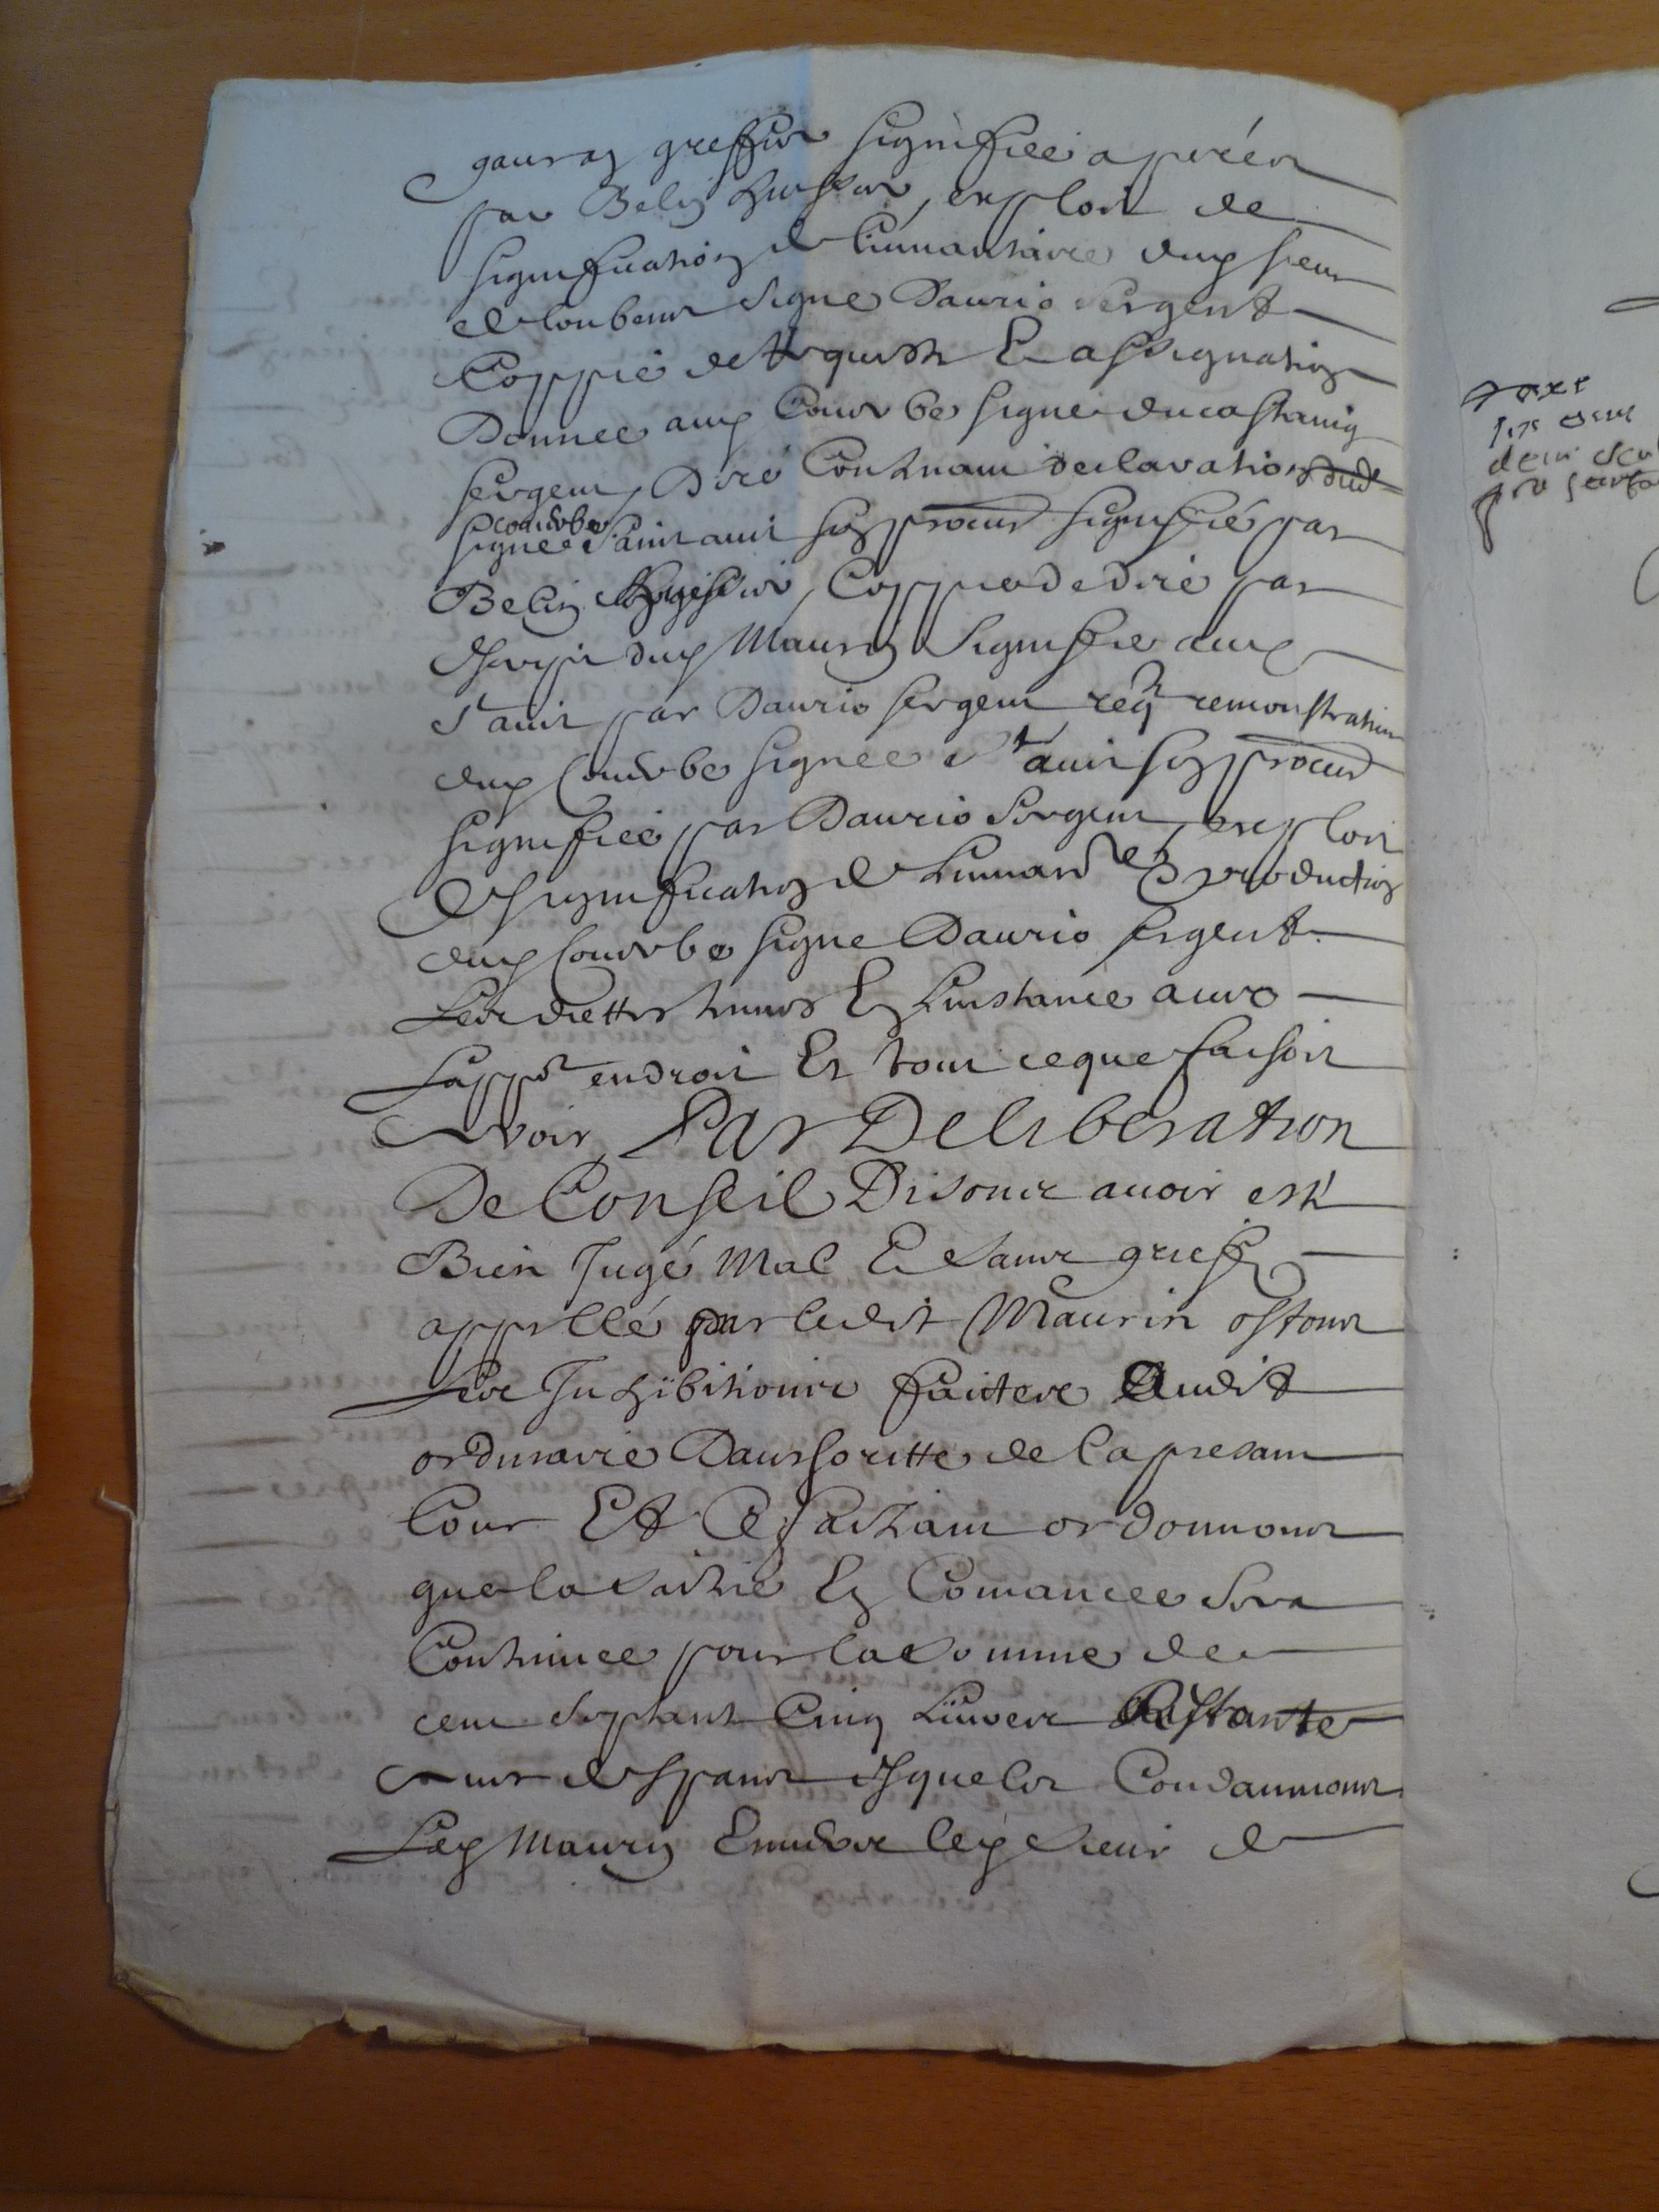 gauran greffier signiffiee a pieces
par Belin huissier, exploit de
signiffication de linvantaire dud sieur
de loubens signe Daurio sergent
Coppie de requeste Et assignation
Donnee aud Courbe signe ducastaing
sergent, Dire Contenant declaration dud
courbe
signee saint auit son procur signiffié par
Belin huissier, Coppie de dire par
escript dud Maurin signiffie aud
st auit par Daurio sergent reqte remonstrative
dud Courbe signee st auit son procur
signifiee par Daurio sergent, exploit
de signiffication de linvanre Et production
dud Courbe signe Daurio sergent
Les dittes tenues En linstance avec
Lappt endroit Et tout ce que faisoit
a voir, Par Deliberation
De Conseil Disons avoir esté
Bien Jugé Mal Et sans grief
appellé par ledit Maurin ostons
Les Inhibitions faictes Audit
ordinaire Dauthoritte de la presant
Cour Et Ce faisant ordonnons
que la saisie En Comancee sera
Continuee pour la somme de
cent septante Cinq Livres Restante
esquelles Condamnons
Led Maurin Envers led sieur de
taxe